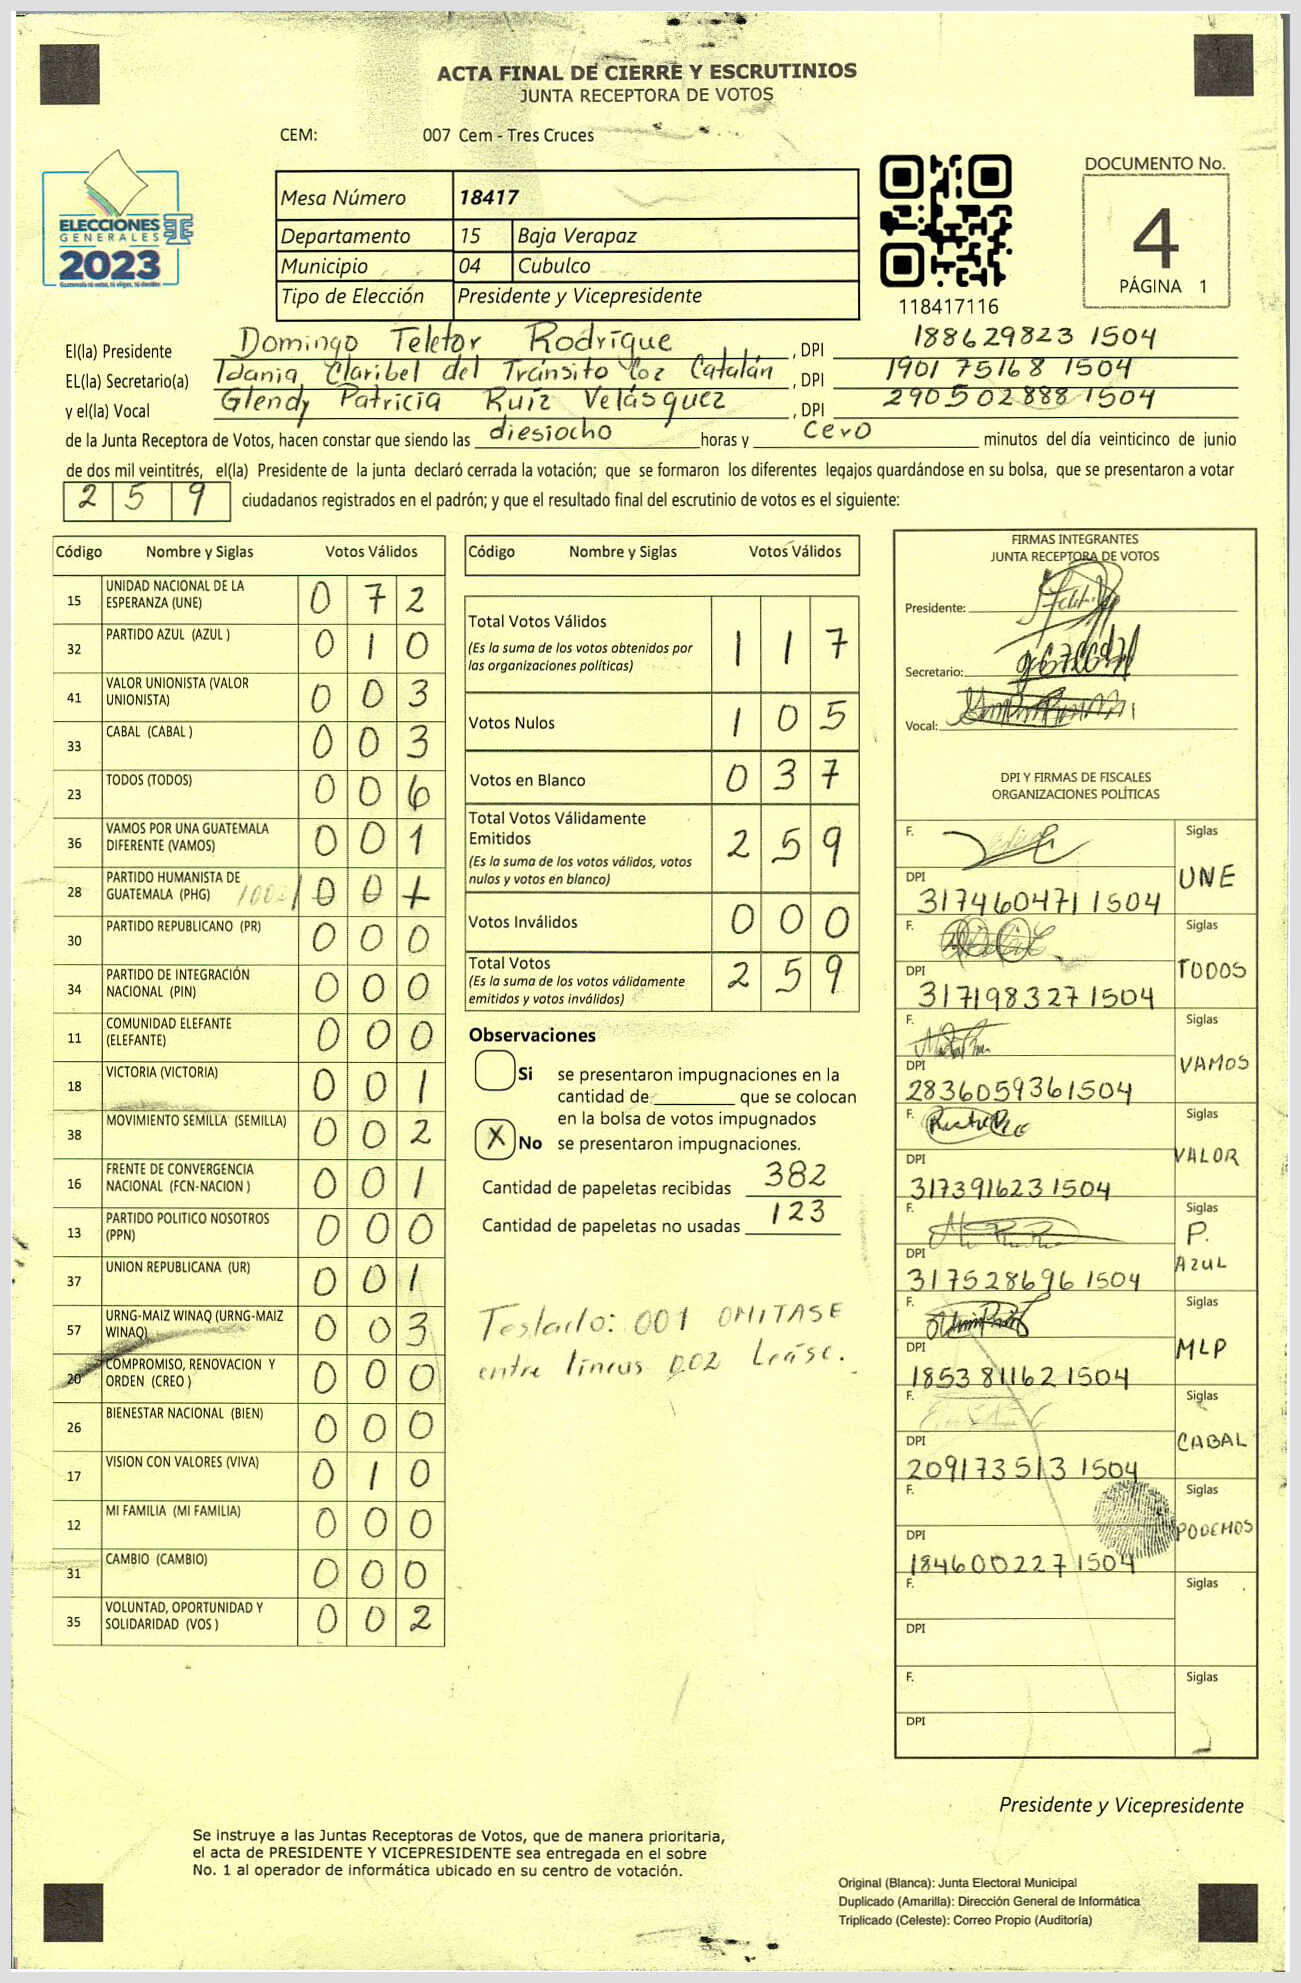 ACTA FINAL DE CIERRE Y ESCRUTINIOS
JUNTA RECEPTORA DE VOTOS
CEM: 007 Cem - Tres Cruces
ELECCIONES
GENERALES
2023
Mesa Número 18417
Departamento 15 Baja Verapaz
Municipio 04 Cubulco
Tipo de Elección Presidente y Vicepresidente
118417116
DOCUMENTO No.
4
PÁGINA 1
El(la) Presidente Domingo Teletor Rodrígue, DPI 188629823 1504
EL(la) Secretario(a) Idania Claribel del Tránsito Coz Catalán, DPI 1901 75168 1504
y el(la) Vocal Glendy Patricia Ruíz Velásquez, DPI 290502888 1504
de la Junta Receptora de Votos, hacen constar que siendo las diesiocho horas y cero minutos del día veinticinco de junio
de dos mil veintitrés, el(la) Presidente de la junta declaró cerrada la votación; que se formaron los diferentes legajos guardándose en su bolsa, que se presentaron a votar
2 5 9 ciudadanos registrados en el padrón; y que el resultado final del escrutinio de votos es el siguiente:
Código Nombre y Siglas Votos Válidos
15 UNIDAD NACIONAL DE LA ESPERANZA (UNE) 0 7 2
32 PARTIDO AZUL (AZUL ) 0 1 0
41 VALOR UNIONISTA (VALOR UNIONISTA) 0 0 3
33 CABAL (CABAL ) 0 0 3
23 TODOS (TODOS) 0 0 6
36 VAMOS POR UNA GUATEMALA DIFERENTE (VAMOS) 0 0 1
28 PARTIDO HUMANISTA DE GUATEMALA (PHG) /002/ 0 0 1
30 PARTIDO REPUBLICANO (PR) 0 0 0
34 PARTIDO DE INTEGRACIÓN NACIONAL (PIN) 0 0 0
11 COMUNIDAD ELEFANTE (ELEFANTE) 0 0 0
18 VICTORIA (VICTORIA) 0 0 1
38 MOVIMIENTO SEMILLA (SEMILLA) 0 0 2
16 FRENTE DE CONVERGENCIA NACIONAL (FCN-NACION ) 0 0 1
13 PARTIDO POLITICO NOSOTROS (PPN) 0 0 0
37 UNION REPUBLICANA (UR) 0 0 1
57 URNG-MAIZ WINAQ (URNG-MAIZ WINAQ) 0 0 3
20 COMPROMISO, RENOVACION Y ORDEN (CREO ) 0 0 0
26 BIENESTAR NACIONAL (BIEN) 0 0 0
17 VISION CON VALORES (VIVA) 0 1 0
12 MI FAMILIA (MI FAMILIA) 0 0 0
31 CAMBIO (CAMBIO) 0 0 0
35 VOLUNTAD, OPORTUNIDAD Y SOLIDARIDAD (VOS ) 0 0 2
Código Nombre y Siglas Votos Válidos
Total Votos Válidos 1 1 7
(Es la suma de los votos obtenidos por
las organizaciones políticas)
Votos Nulos 1 0 5
Votos en Blanco 0 3 7
Total Votos Válidamente
Emitidos 2 5 9
(Es la suma de los votos válidos, votos
nulos y votos en blanco)
Votos Inválidos 0 0 0
Total Votos 2 5 9
(Es la suma de los votos válidamente
emitidos y votos inválidos)
Observaciones
Si se presentaron impugnaciones en la
cantidad de que se colocan
en la bolsa de votos impugnados
X No se presentaron impugnaciones.
Cantidad de papeletas recibidas 382
Cantidad de papeletas no usadas 123
Testado: 001 OMITASE
entre líneas 002 Leáse.
FIRMAS INTEGRANTES
JUNTA RECEPTORA DE VOTOS
Presidente:
Secretario:
Vocal:
DPI Y FIRMAS DE FISCALES
ORGANIZACIONES POLÍTICAS
F. Siglas
DPI 317460471 1504 UNE
F. Siglas
DPI 317198327 1504 TODOS
F. Siglas
DPI 2836059361504 VAMOS
F. Siglas
DPI 317391623 1504 VALOR
F. Siglas
DPI 317528696 1504 P. AZUL
F. Siglas
DPI 185381162 1504 MLP
F. Siglas
DPI 209173513 1504 CABAL
F. Siglas
DPI 184600227 1504 PODEMOS
F. Siglas
DPI
F. Siglas
DPI
Presidente y Vicepresidente
Se instruye a las Juntas Receptoras de Votos, que de manera prioritaria,
el acta de PRESIDENTE Y VICEPRESIDENTE sea entregada en el sobre
No. 1 al operador de informática ubicado en su centro de votación.
Original (Blanca): Junta Electoral Municipal
Duplicado (Amarilla): Dirección General de Informática
Triplicado (Celeste): Correo Propio (Auditoría)